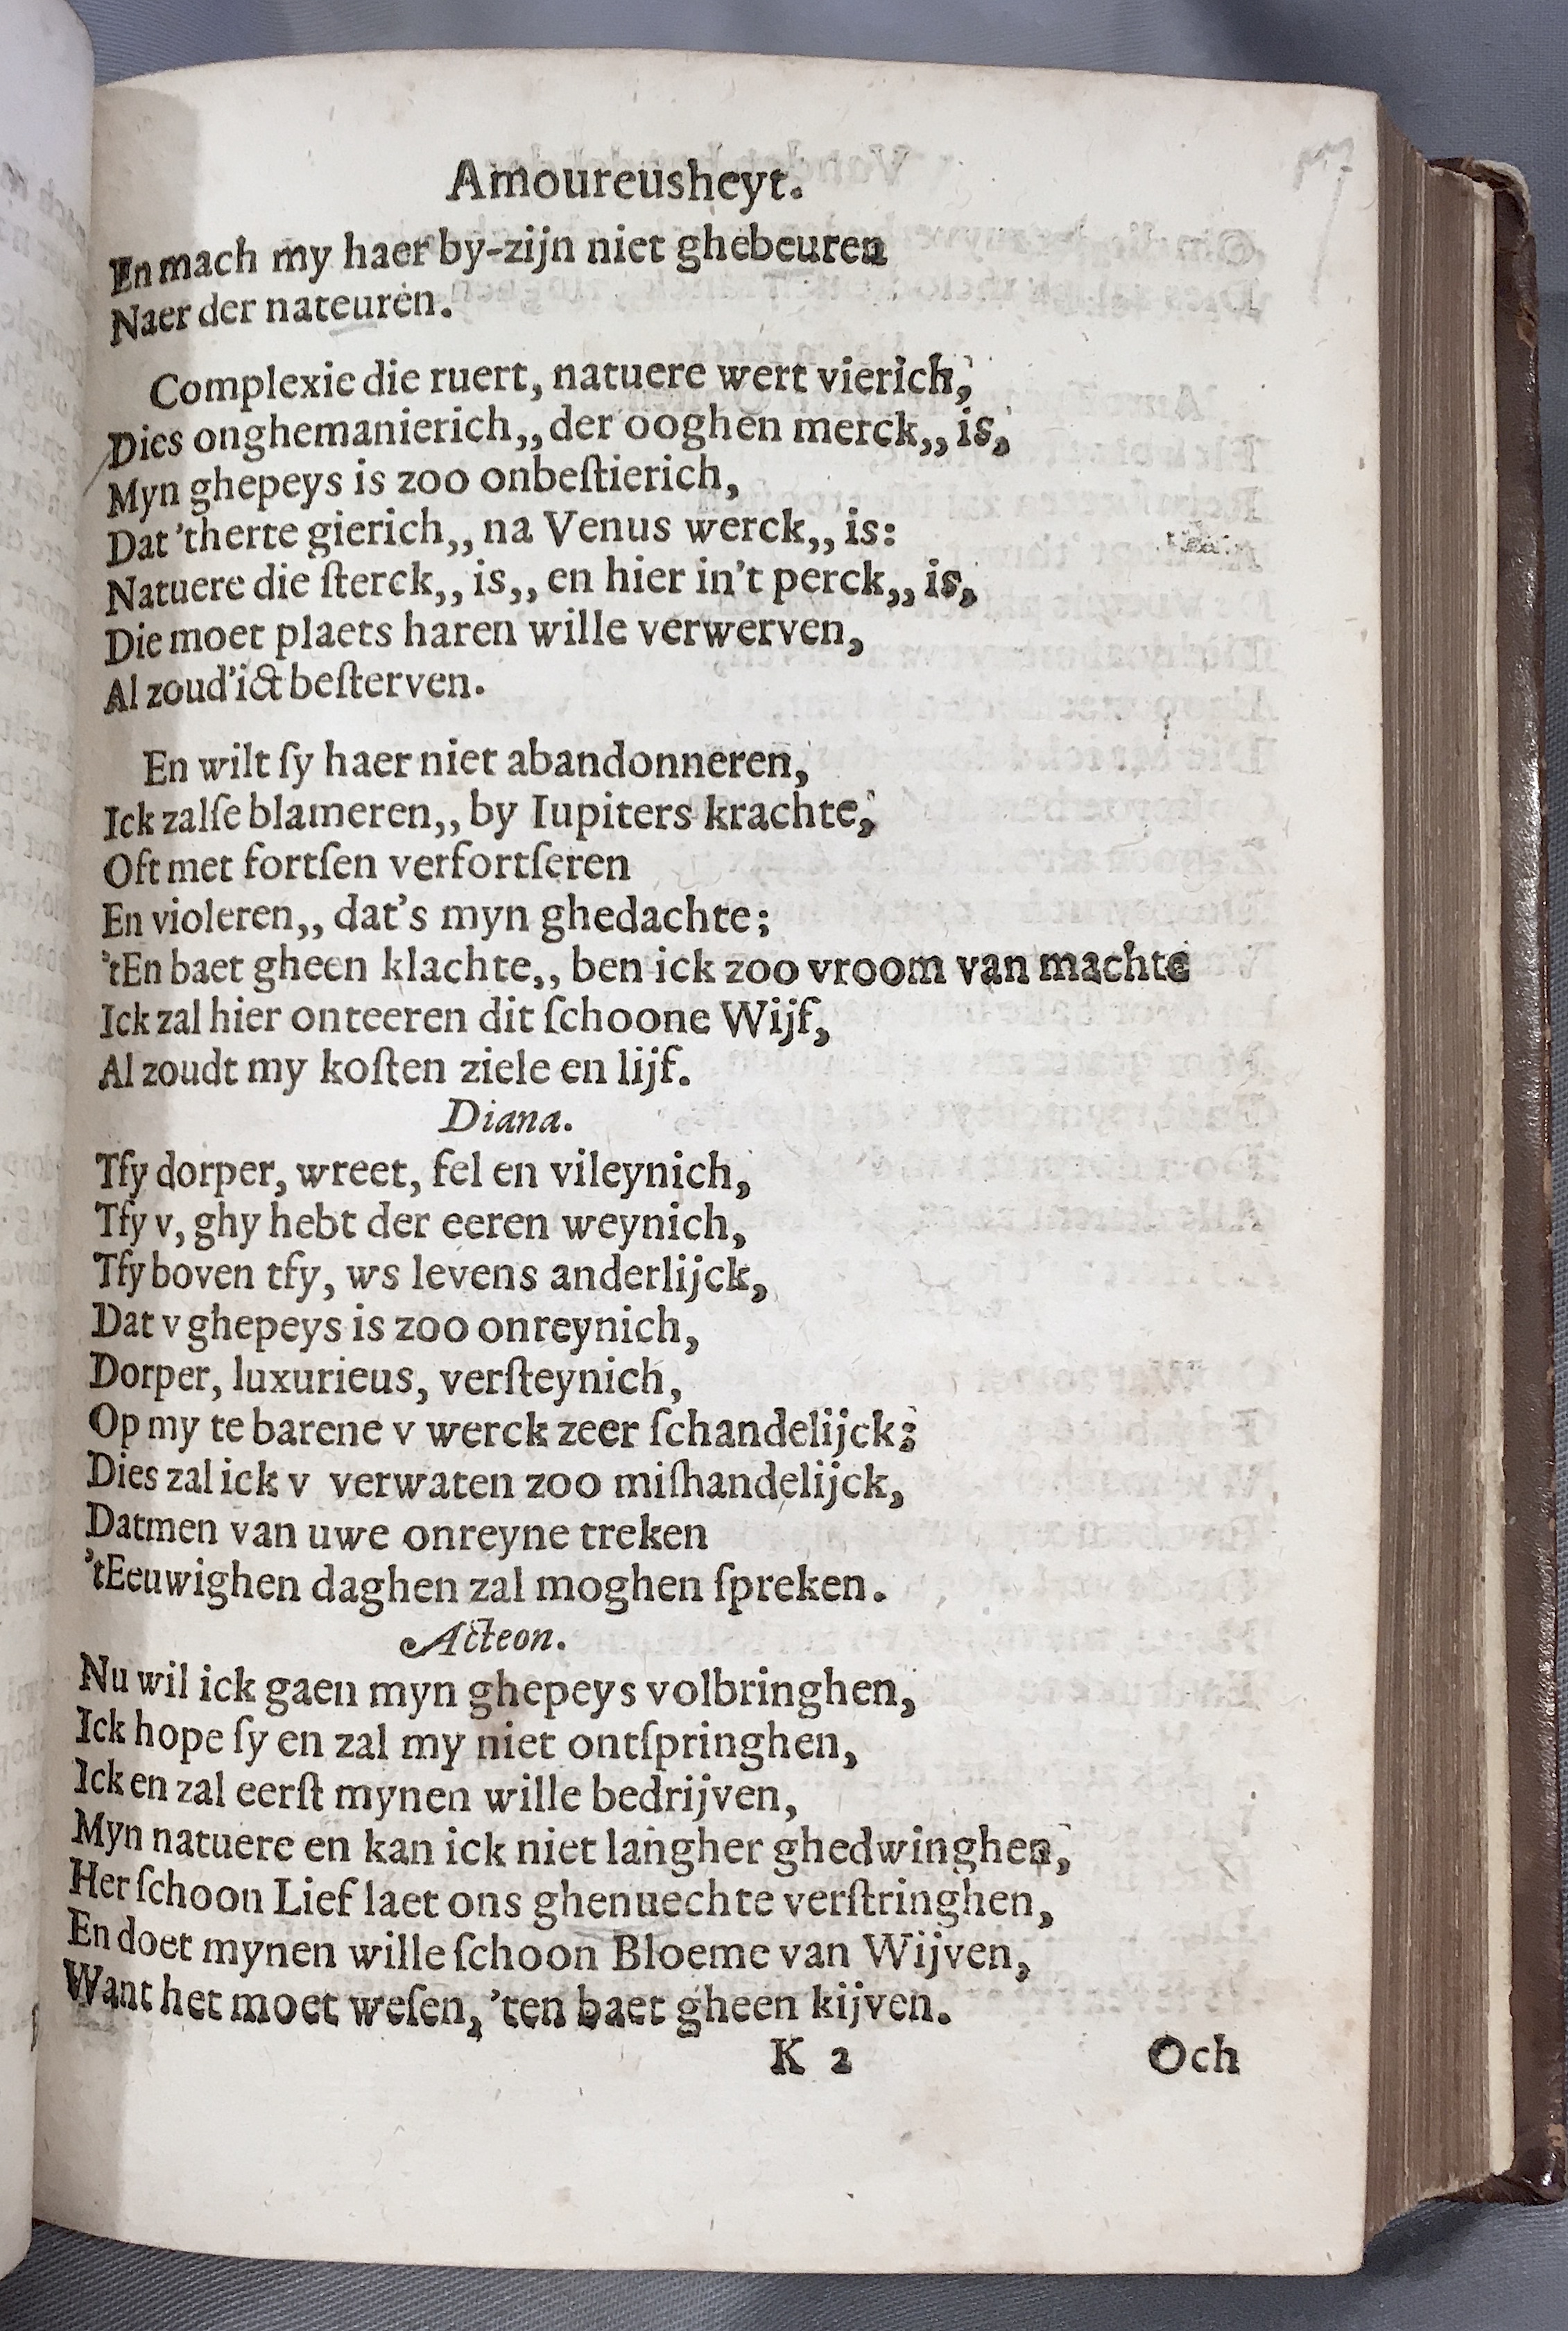 Amoureusheyt.
En mach my haer by-zijn niet ghebeuren
Naer der nateuren.
Complexie die ruert, natuere wert vierich,
Dies onghemanierich,, der ooghen merck,, is,
Myn ghepeys is zoo onbeſtierich,
Dat 'therte gierich,, na Venus werck,, is:
Natuere die ſterck,, is,, en hier in't perck,, is,
Die moet plaets haren wille verwerven,
Al zoud'ict beſterven.
En wilt ſy haer niet abandonneren,
Ick zalſe blameren,, by Iupiters krachte,
Oft met fortſen verfortſeren
En violeren,, dat's myn ghedachte;
'tEn baet gheen klachte,, ben ick zoo vroom van machte
Ick zal hier onteeren dit ſchoone Wijf,
Al zoudt my koſten ziele en lijf.
Diana.
Tfy dorper, wreet, fel en vileynich,
Tfy v, ghy hebt der eeren weynich,
Tfy boven tfy, ws levens anderlijck,
Dat v ghepeys is zoo onreynich,
Dorper, luxurieus, verſteynich,
Op my te barene v werck zeer ſchandelijck;
Dies zal ick v verwaten zoo miſhandelijck,
Datmen van uwe onreyne treken
'tEeuwighen daghen zal moghen ſpreken.
Acteon.
Nu wil ick gaen myn ghepeys volbringhen,
Ick hope ſy en zal my niet ontſpringhen,
Ick en zal eerſt mynen wille bedrijven,
Myn natuere en kan ick niet langher ghedwinghen,
Her ſchoon Lief laet ons ghenuechte verſtringhen,
En doet mynen wille ſchoon Bloeme van Wijven,
Want het moet weſen, 'ten baet gheen kijven.
K 2
Och